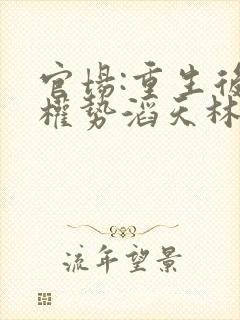 官场:重生後
權势滔天林
流年望景